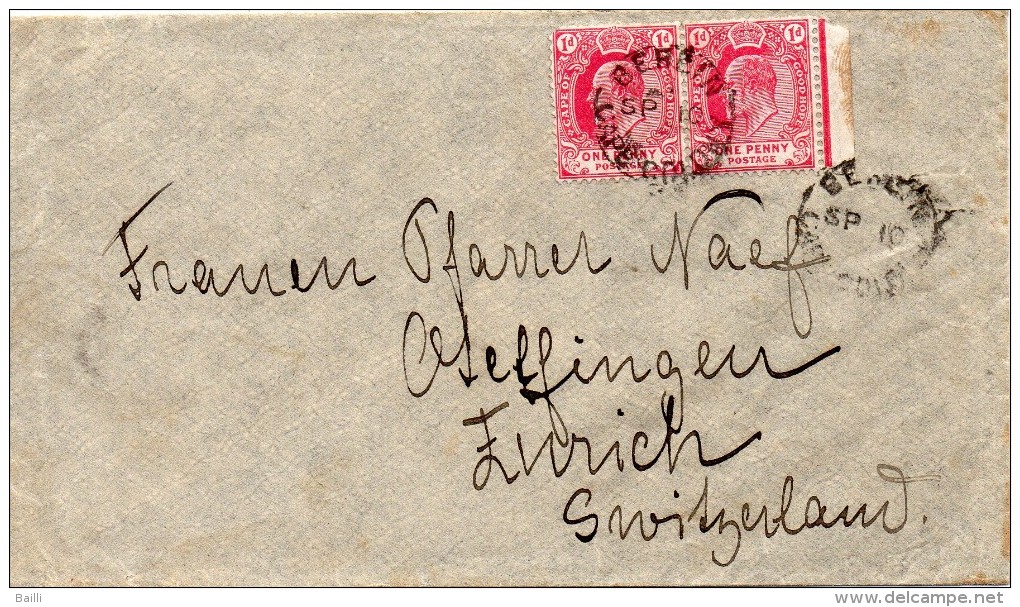 1d 1d 1d 1d
CAPE OF GOOD HOPE CAPE OF GOOD HOPE
ONE PENNY ONE PENNY
POSTAGE POSTAGE
BERLIN
SP 10
BERLIN
SP 10
Frauen Pfarrer Naef
Oselfingen
Zurich
Switzerland.
Bailli
delcampe.net